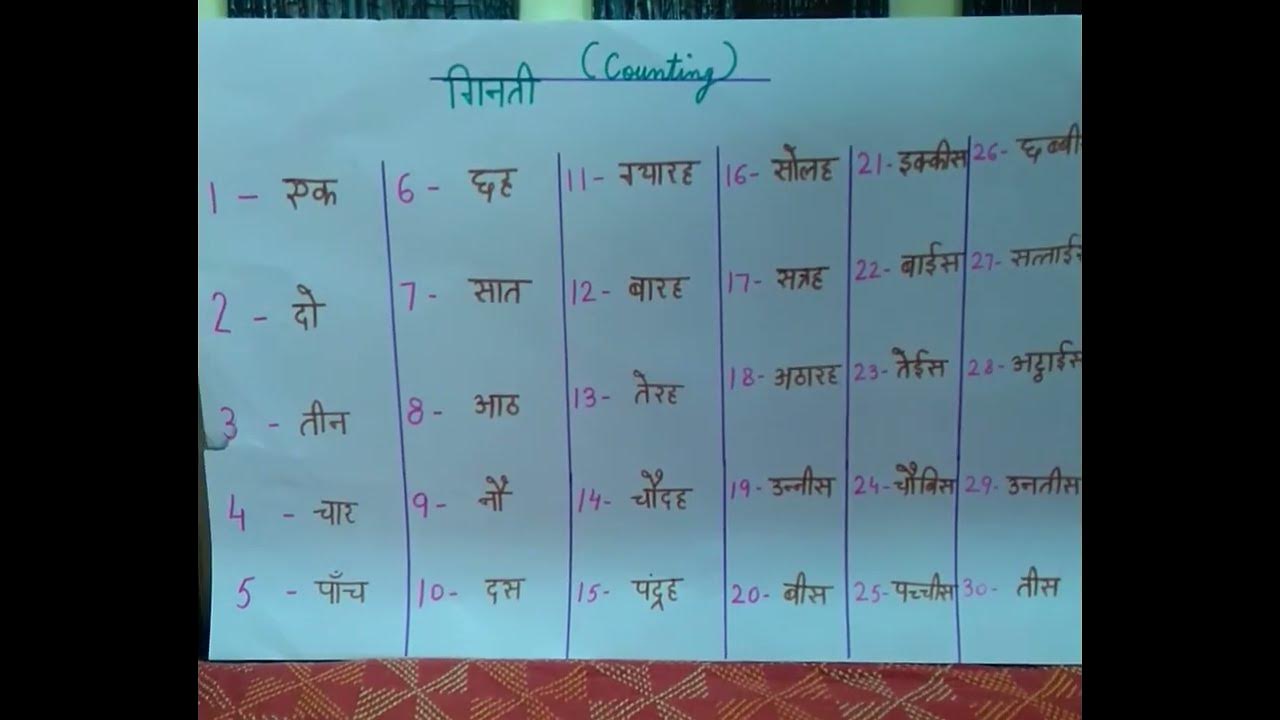 गिनती (Counting)
1 - एक
2 - दो
3 - तीन
4 - चार
5 - पाँच
6 - छह
7 - सात
8 - आठ
9 - नौ
10- दस
11- ग्यारह
12- बारह
13- तेरह
14- चौदह
15- पंद्रह
16- सोलह
17- सत्रह
18- अठारह
19- उन्नीस
20- बीस
21- इक्कीस
22- बाईस
23- तेईस
24- चौबिस
25- पच्चीस
26- छब्बी
27- सत्ताईस
28- अट्ठाईस
29- उनतीस
30- तीस